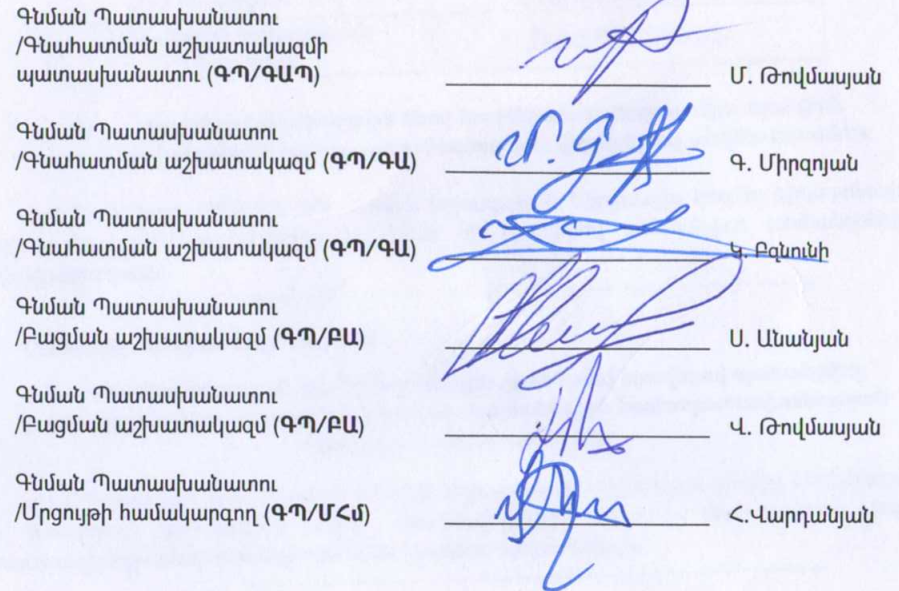 Գնման Պատասխանատու
/Գնահատման աշխատակազմի
պատասխանատու (ԳՊ/ԳԱՊ) Մ. Թովմասյան
Գնման Պատասխանատու
/Գնահատման աշխատակազմ (ԳՊ/ԳԱ) Գ. Միրզոյան
Գնման Պատասխանատու
/Գնահատման աշխատակազմ (ԳՊ/ԳԱ) Կ. Բզնունի
Գնման Պատասխանատու
/Բացման աշխատակազմ (ԳՊ/ԲԱ) Ս. Անանյան
Գնման Պատասխանատու
/Բացման աշխատակազմ (ԳՊ/ԲԱ) Վ. Թովմասյան
Գնման Պատասխանատու
/Մրցույթի համակարգող (ԳՊ/ՄՀմ) Հ.Վարդանյան